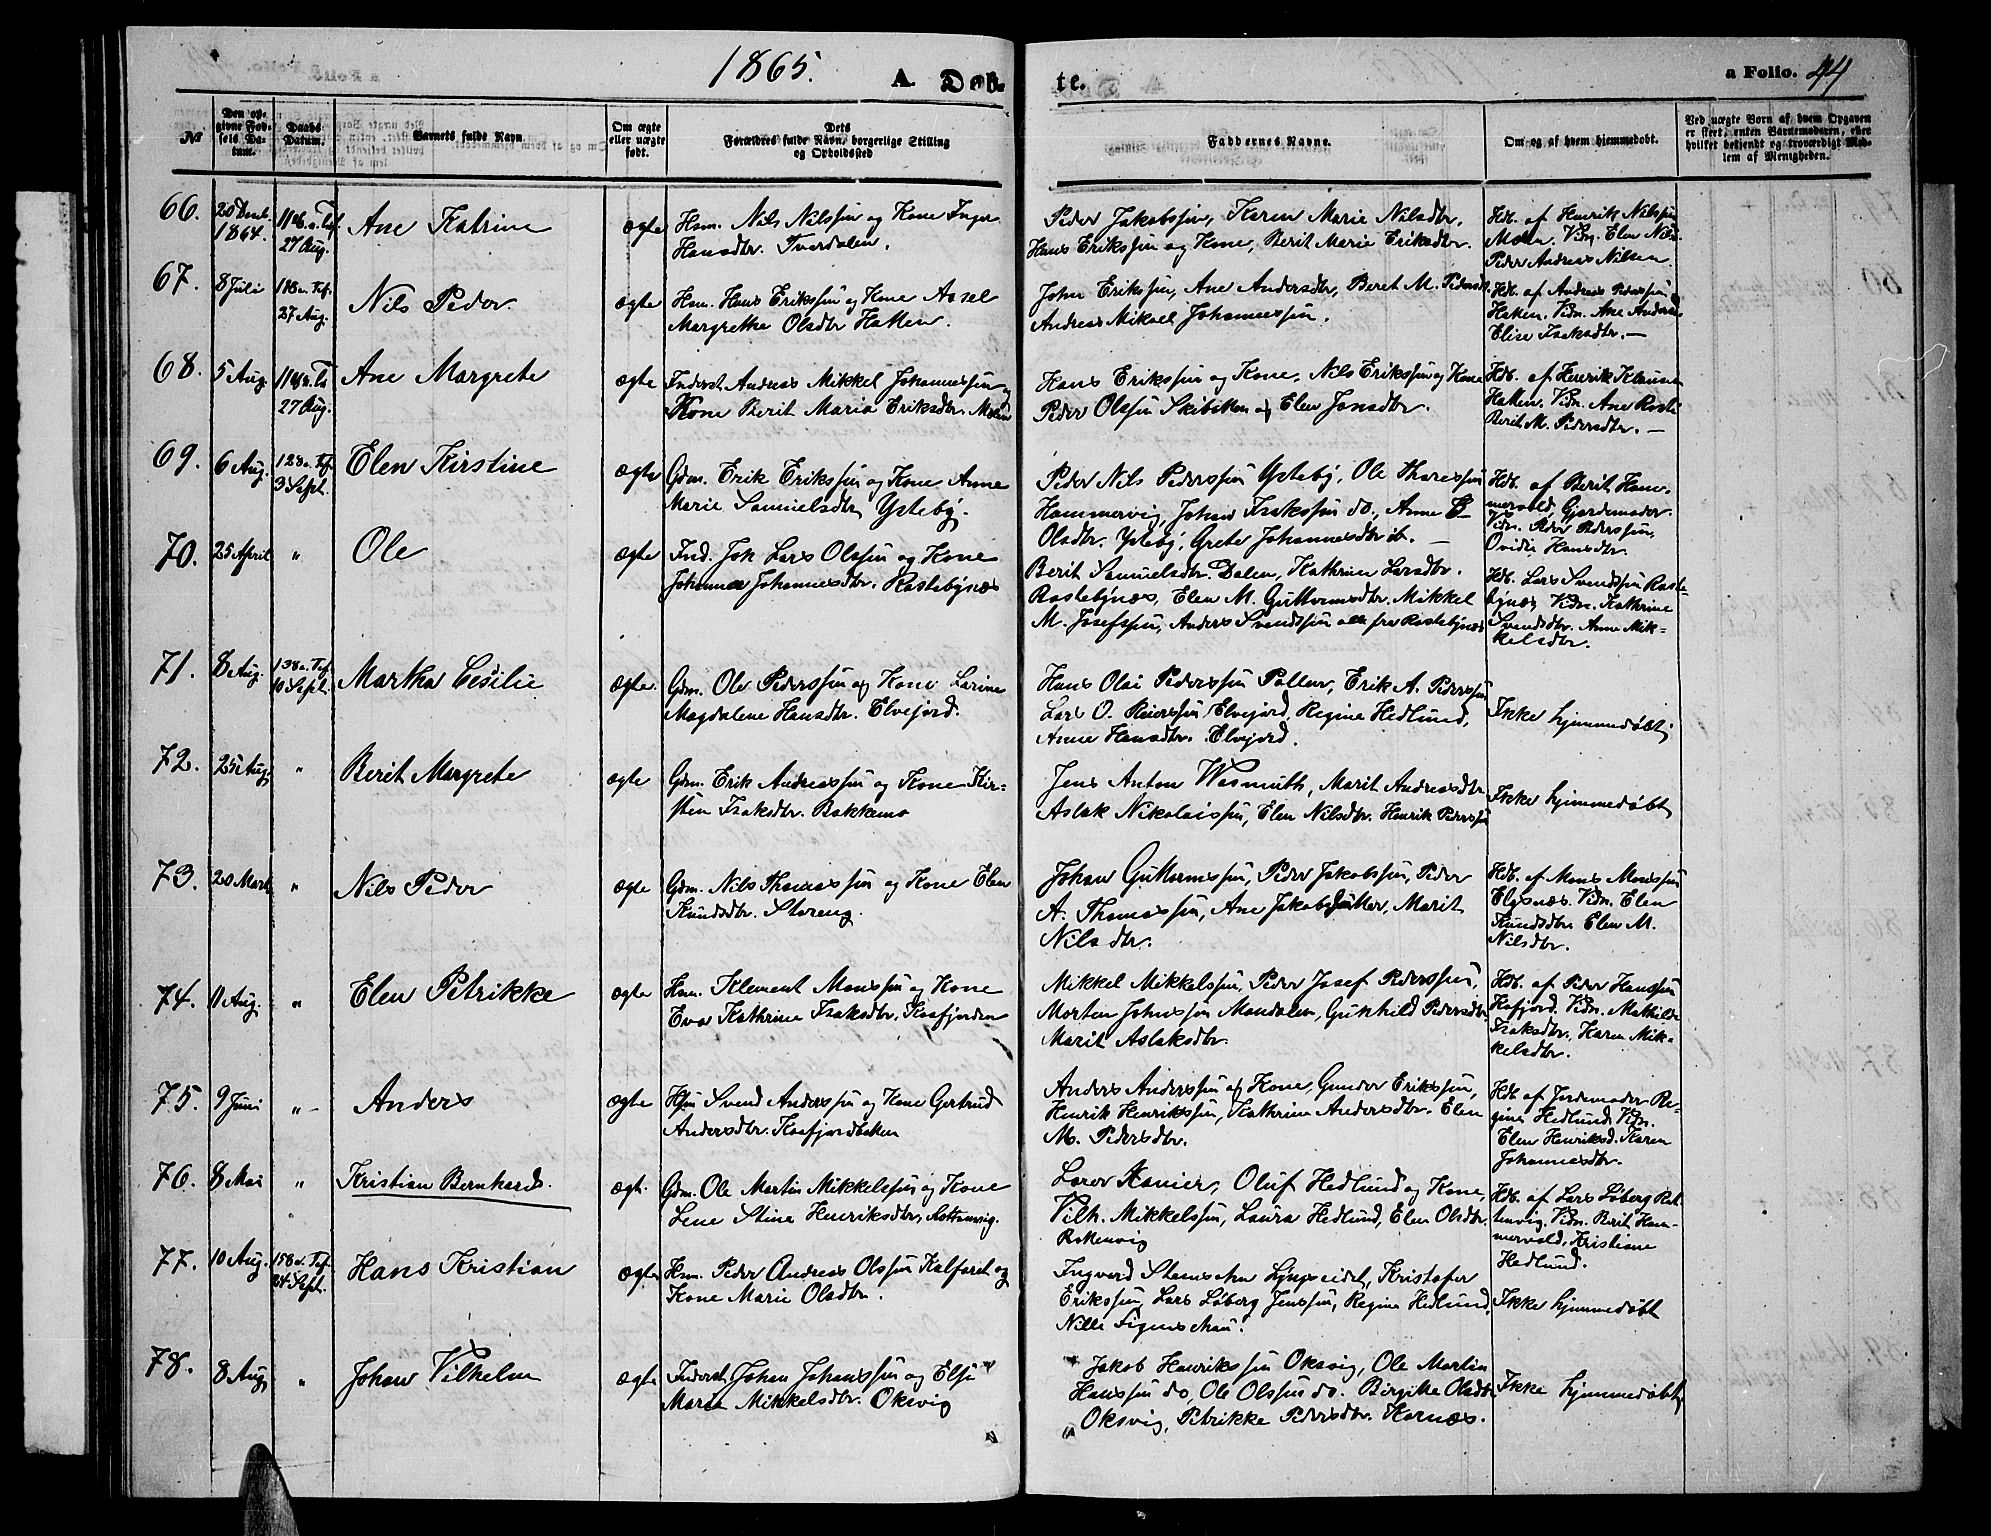 1865. A. Døb- te. a Folio. 44
№
Den op-
givne Fød-
sels Da-
tum.
Daabs-
Datum.
Barnets fulde Navn.
Om ægte
eller uægte
født.
Dets
Forældres fulde Navn, borgerlige Stilling
og Opholdssted
Faddernes Navne.
Om og af hvem hjemmedøbt.
Ved uægte Børn af hvem Opgaven
er skeet, enten Barnemoderen, eller
hvilket bekjendt og troværdigt Med-
lem af Menigheden.
66.
20 Decbr.
1864.
11 S. e. Tref.
27 Aug.
Ane Katrine
ægte
Hsm. Nils Nilssøn og Kone Inger
Hansdtr. Tverdalen.
Peder Jakobssøn, Karen Marie Nilsdtr,
Hans Erikssøn og Kone, Berit Marie Eriksdtr.
Hdb. af Henrik Nilssøn
Moen. Vidn. Elen Nilsd.
Peder Andreas Nilsen
67.
8 Juli
11 S. e. Tref.
27 Aug.
Nils Peder
ægte
Hsm. Hans Erikssøn og Kone Assel
Margrethe Olsdtr Hatten.
John Erikssøn, Ane Andersdtr, Beret M. Pedersd.
Andreas Mikael Johannessøn.
Hdb. af Andreas Pederssøn
Hatten. Vidn. Ane Andersd.
Elise Isaksdtr. —
68.
5 Aug.
11 S. e. Tr.
27 Aug.
Ane Margrete
ægte
Inderst Andreas Mikkel Johannessøn og
Kone Berit Maria Eriksdtr. Molen
Hans Erikssøn og Kone, Nils Erikssøn og Kone
Peder Olssøn Skibotten og Elen Jonsdtr.
Hdb. af Henrik
Hatten. Vidn. Ane
Berit M. Pedersdtr. —
69.
6 Aug.
12 S. e. Tref.
3 Sept.
Elen Kirstine
ægte
Gdm. Erik Erikssøn og Kone Anne
Marie Samuelsdtr Ysteby.
Peder Nils Pederssøn Ysteby, Ole Tharessøn
Hammervig, Johan Isakssøn do., Anne B
Olsdtr. Ysteby, Grete Johannesdtr ib. —
Hdb. af Berit Ham-
mervold, Gjordemoder.
Vidn. Peder Pederssøn,
Ovidia Hansdtr.
70.
25 April
"
Ole
ægte
Ind. Joh Lars Olssøn og Kone
Johanna Johannesdtr. Rastebynæs
Berit Samuelsdtr. Dalen, Kathrine Larsdtr.
Rastebynæs, Elen M. Guttormsdtr. Mikkel
M. Josefssøn, Anders Svendssøn alle fra Rastebynæs
Hdb. Lars Svendssøn Raste-
bynæs Vidn. Kathrine
Svendsdtr. Anne Mik-
kelsdtr.
71.
8 Aug.
13 S. e. Tref.
10 Sept.
Martha Cesilie
ægte.
Gdm. Ole Pederssøn og Kone Larine
Magdalene Hansdtr. Elvejord.
Hans Olai Pederssøn Pollen, Erik A. Pederssøn
Lars O. Reierssøn Elvejord, Regine Hedlund,
Anne Hansdtr. Elvejord.
Ikke hjemmedøbt
72.
25 Aug.
"
Berit Margrete
ægte
Gdm. Erik Andreassøn og Kone Kir-
sten Isaksdtr. Bakkemo
Jens Anton Wasmuth, Marit Andreasdtr
Aslak Nikolaissøn, Elen Nilsdtr. Henrik Pederssøn
Ikke hjemmedøbt
73.
20 Marts
"
Nils Peder
ægte
Gdm. Nils Thomassøn og Kone Elen
Knudsdtr. Storeng
Johan Guttormssøn, Peder Jakobssøn, Peder
A. Thomassøn, Ane Jakobsdatter, Marit
Nilsdtr.
Hdb. af Mons Monssøn
Elgsnæs. Vidn. Elen
Knudsdtr. Elen M.
Nilsdtr.
74.
11 Aug.
"
Elen Petrikke
ægte
Hsm. Klement Monssøn og Kone
Eva Kathrine Isaksdtr, Kaafjorden
Mikkel Mikkelssøn, Peder Josef Pederssøn,
Morten Johnssøn Mandalen, Gunhild Pedersdtr
Marit Aslaksdtr.
Hdb. af Peder Hanssøn
Kafjord. Vidn. Mathilde
Isaksdtr, Karen Mik-
kelsdtr.
75.
9 Juni
" -
Anders
ægte
Hsm Svend Anderssøn og Kone Gertrud
Andersdtr. Kaafjordbotten
Anders Anderssøn og Kone, Gunder Erikssøn,
Henrik Henrikssøn, Kathrine Andersdtr. Elen
M. Pedersdtr.
Hdb. af Jordemoder Re-
gine Hedlund. Vidn.
Elen Henriksd. Karen
Johannesdtr.
76.
8 Mai
"
Kristian Bernhard.
ægte.
Gdm. Ole Martin Mikkelssøn og Kone
Lene Stina Henriksdtr, Rottenvig.
Oluf Hedlund og Kone,
Vilh. Mikkelssøn, Laura Hedlund, Elen Olsdtr.
Rottenvig
Hdb. af Lars Løberg Rot-
tenvig. Vidn. Berit Ham-
mervold, Kristiane
Hedlund.
77.
10 Aug.
15 S. e. Tref.
24 Sept.
Hans Kristian
ægte
Hsm. Peder Andreas Olssøn Kalfaret og
Kone Marie Olsdtr.
Ingvord Lyngseidet, Kristofer
Erikssøn, Lars Løberg Jenssøn, Regine Hedlund,
Nille Figenschau.
Ikke hjemmedøbt
78.
8 Aug.
"
Johan Vilhelm
ægte
Inderst Johan Johanssøn og Else
Maria Mikkelsdtr. Oksvig
Jakob Henrikssøn Oksvig, Ole Martin
Hanssøn do, Ole Olssøn do. Birgitte Olsdtr.
Oksvig, Petrikke Pedersdtr. Hornæs.
Ikke hjemmedøbt